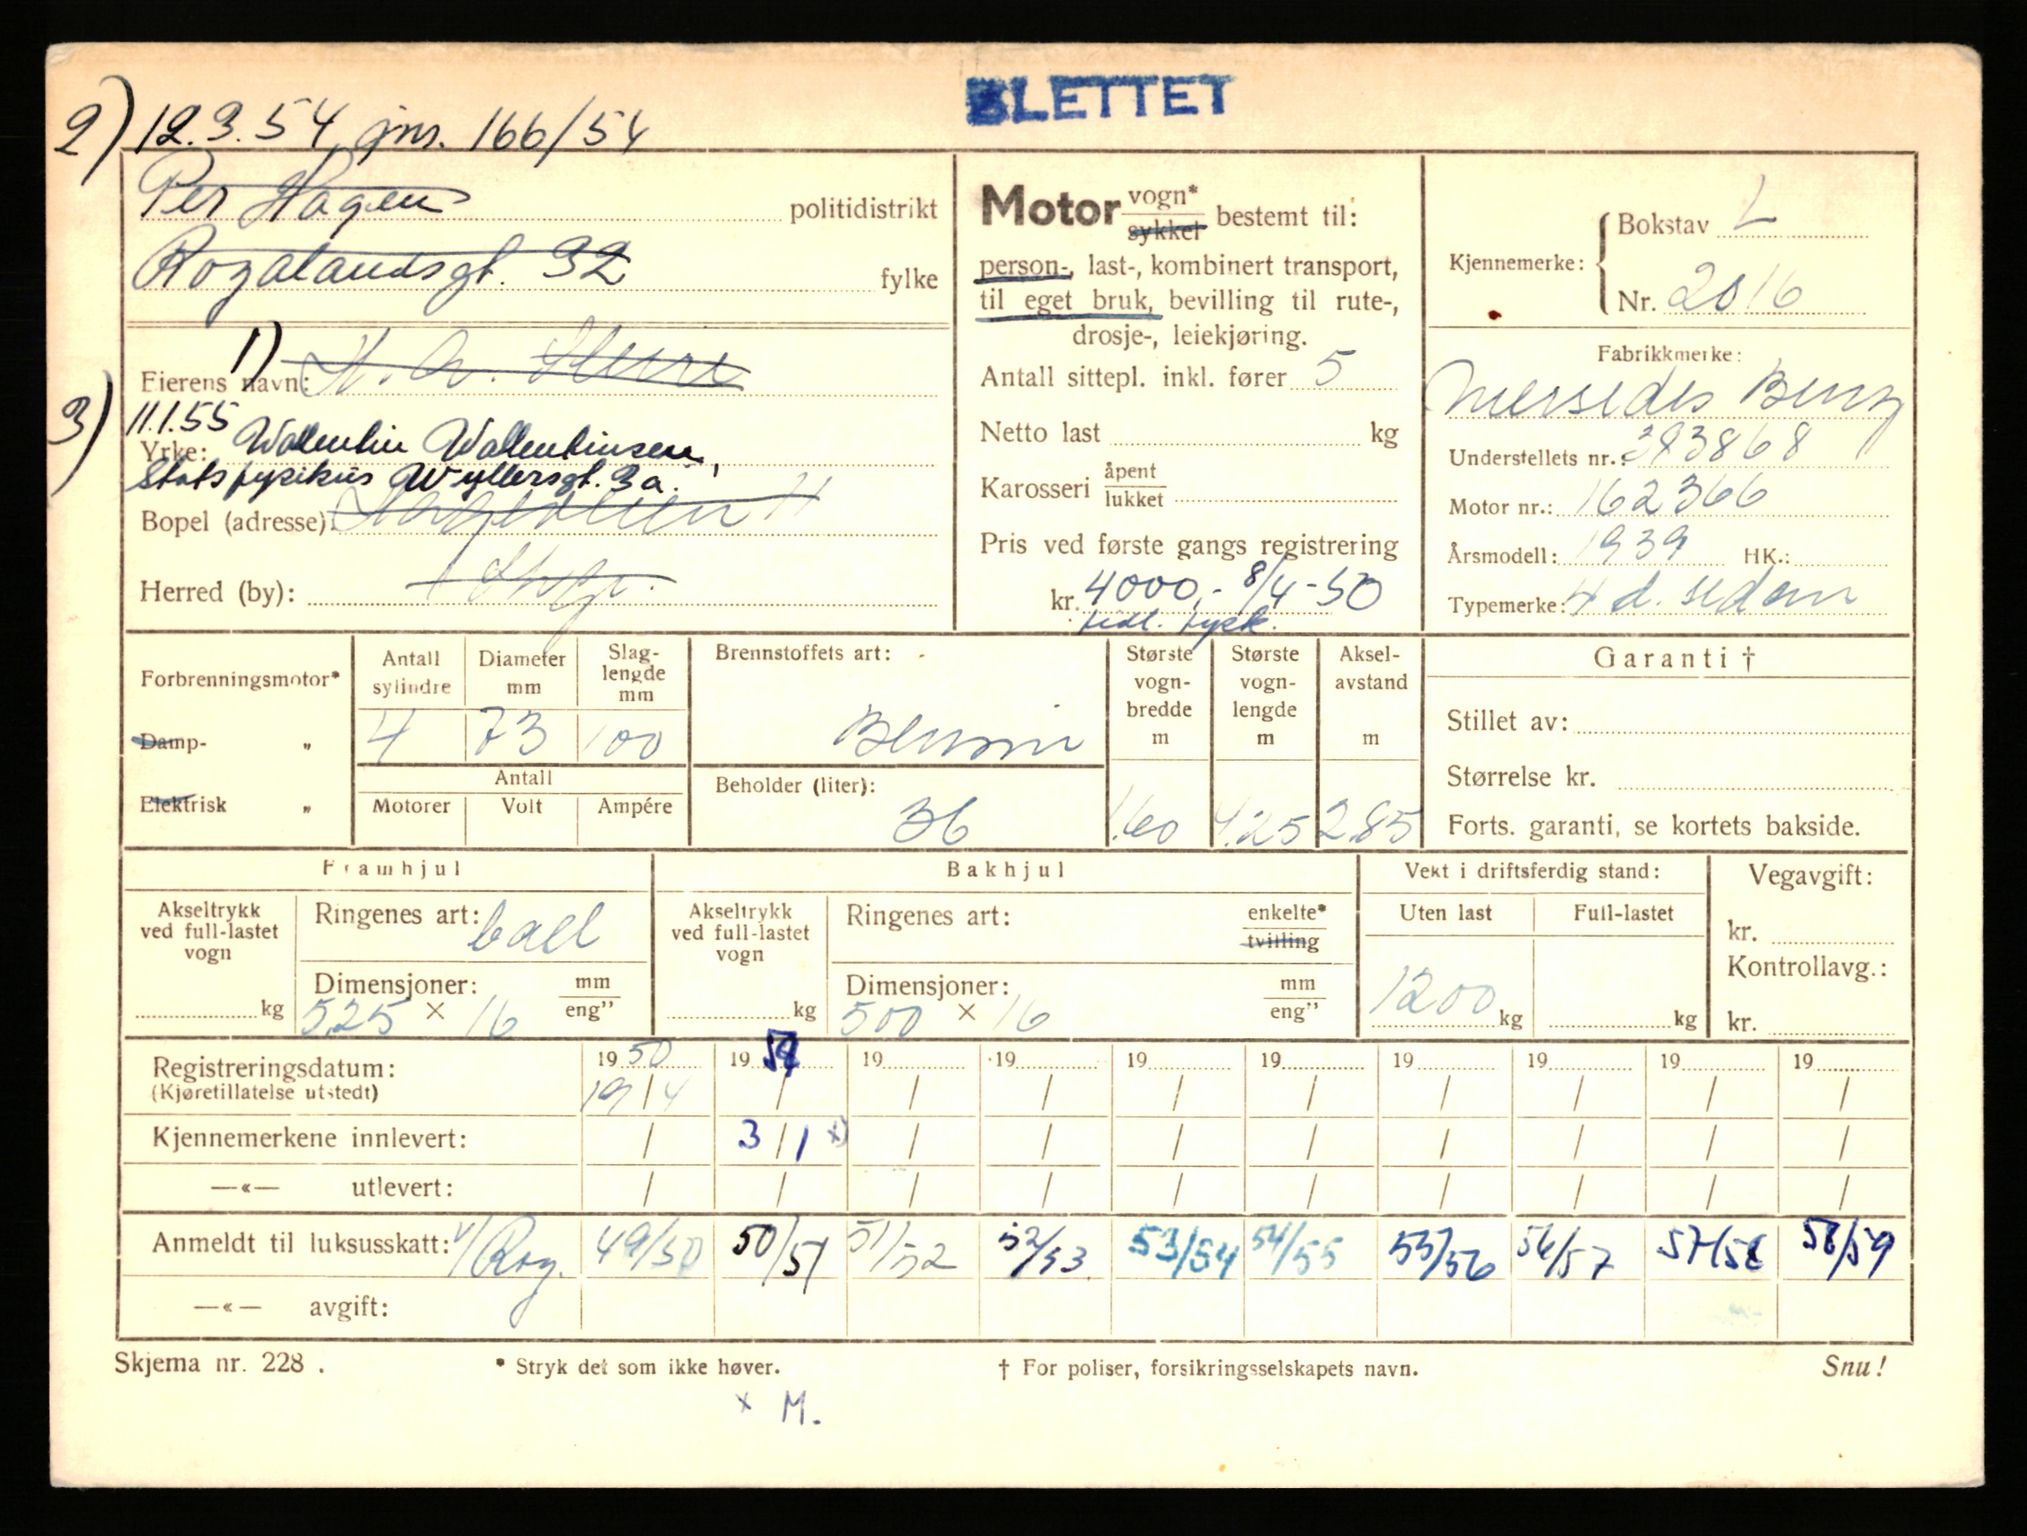 SLETTET
2) 12.3.54 jnr. 166/54
Per Hagen politidistrikt
Rogalandsgt. 32 fylke
1)
Eierens navn:
3) 11.1.55
Yrke: Wallentin Wallentinsen,
Statsfysikus Wyllersgt. 3a.
Bopel (adresse):
Herred (by): Svgr.
Motor vogn* sykkel bestemt til:
person-, last-, kombinert transport,
til eget bruk, bevilling til rute-,
drosje-, leiekjøring.
Antall sittepl. inkl. fører 5
Netto last kg
Karosseri åpent lukket
Pris ved første gangs registrering
kr. 4000,- 8/4-50
tidl. tysk.
Kjennemerke: Bokstav L
Nr. 2016
Fabrikkmerke:
Mersedes Benz
Understellets nr.: 383868
Motor nr.: 162366
Årsmodell: 1939 HK.:
Typemerke: 4 d. sedan
Forbrenningsmotor*
Damp- „
Elektrisk „
Antall sylindre Diameter mm Slaglengde mm
4 73 100
Antall
Motorer Volt Ampére
Brennstoffets art:
Bensin
Beholder (liter):
36
Største vogn-bredde m Største vogn-lengde m Aksel-avstand m
1.60 4.25 2.85
Garanti †
Stillet av:
Størrelse kr.
Forts. garanti, se kortets bakside.
Framhjul
Akseltrykk ved full-lastet vogn
kg
Ringenes art: ball
Dimensjoner: mm eng"
525 × 16
Bakhjul
Akseltrykk ved full-lastet vogn
kg
Ringenes art: enkelte* tvilling
Dimensjoner: mm eng"
500 × 16
Vekt i driftsferdig stand:
Uten last Full-lastet
1200 kg kg
Vegavgift:
kr.
Kontrollavg.:
kr.
Registreringsdatum: 19 50 19 59 19 19 19 19 19 19 19 19
(Kjøretillatelse utstedt) 19/4 / / / / / / / / /
Kjennemerkene innlevert: / 3/1 x) / / / / / / / /
—«— utlevert: / / / / / / / / / /
Anmeldt til luksusskatt: V/Rog. 49/50 50/51 51/52 52/53 53/54 54/55 55/56 56/57 57/58 58/59
—«— avgift:
Skjema nr. 228 . * Stryk det som ikke høver. † For poliser, forsikringsselskapets navn. Snu!
x M.